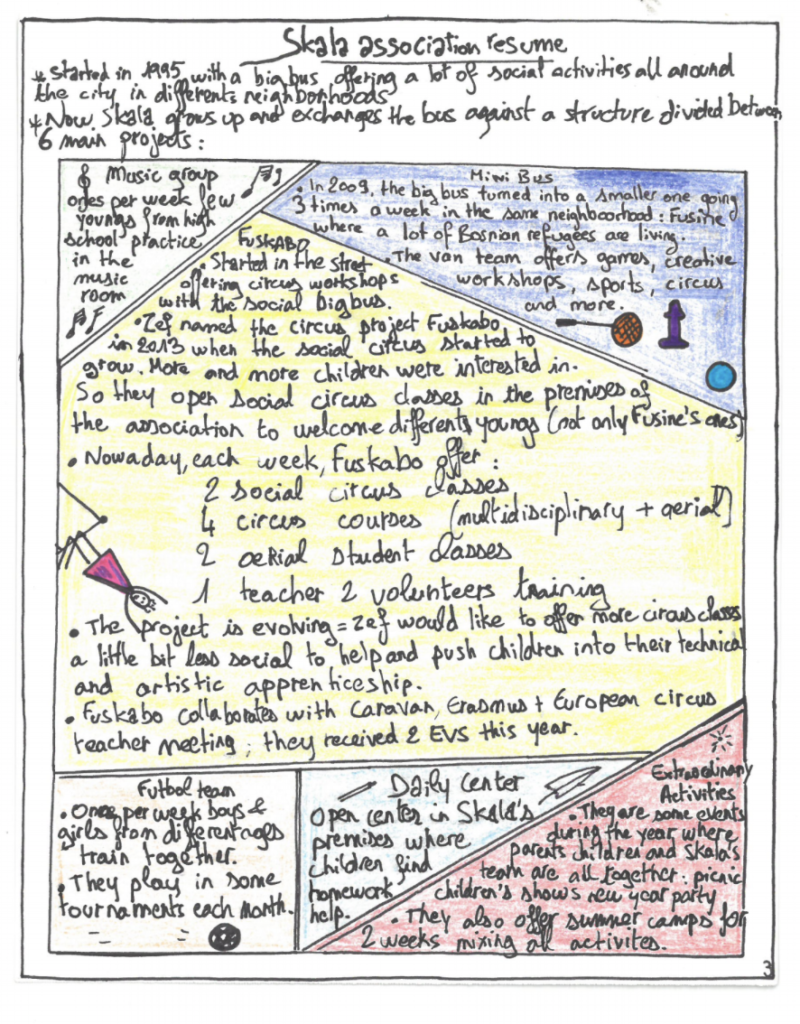 Skala association resume
* Started in 1995 with a big bus offering a lot of social activities all around
the city in differents neighborhoods
* Now Skala grows up and exchanges the bus against a structure divided between
6 main projects :
Music group
ones per week few
youngs from high
school practice
in the
music
room
Mini Bus
• In 2009, the big bus turned into a smaller one going
3 times a week in the same neighboorhood : Fusine
where a lot of Bosnian refugees are living.
• The van team offers games, creative
workshops, sports, circus
and more.
FUSKABO
• Started in the street
offering circus workshops
with the social big bus.
• Zef named the circus project Fuskabo
in 2013 when the social circus started to
grow. More and more children were interested in.
So they open social circus classes in the premises of
the association to welcome differents youngs (not only Fusine's ones)
• Nowaday, each week, Fuskabo offer :
2 social circus classes
4 circus courses (multidisciplinary + aerial)
2 aerial student classes
1 teacher 2 volunteers training
• The project is evolving = Zef would like to offer more circus classes
a little bit less social to help and push children into their technical
and artistic apprenticeship.
• Fuskabo collaborates with Caravan, Erasmus + European circus
teacher meeting ; they received 2 EVS this year.
Futbol team
• Once per week boys &
girls from different ages
train together.
• They play in some
tournaments each month.
Daily Center
Open center in Skala's
premises where
children find
homework
help.
Extraordinary
Activities
• They are some events
during the year where
parents children and Skala's
team are all together. picnic
children's shows new year party
• They also offer summer camps for
2 weeks mixing all activites.
3